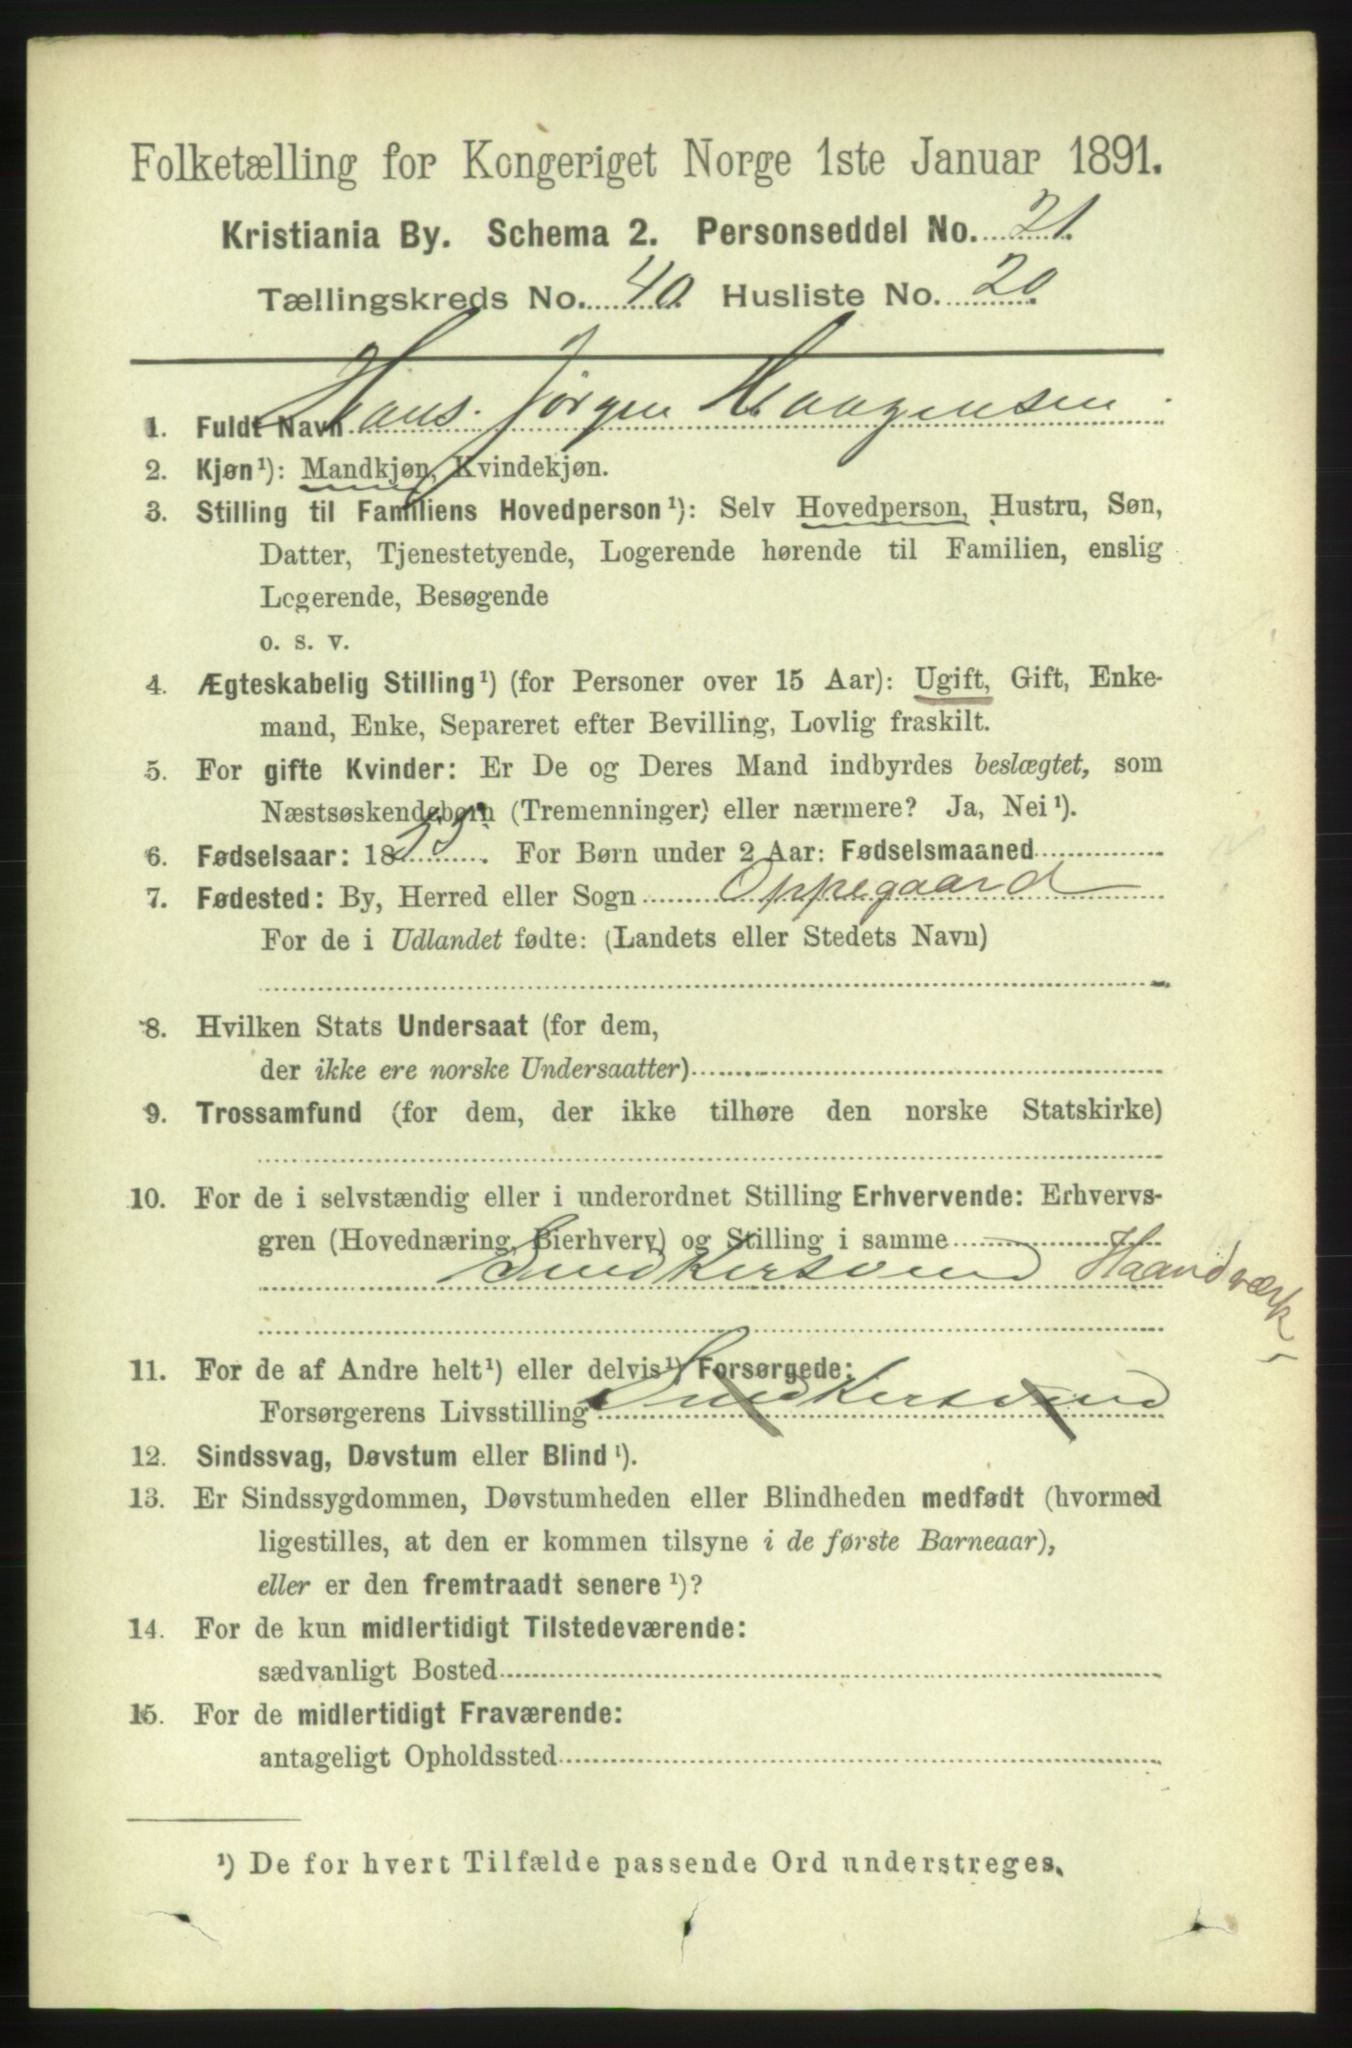 Folketælling for Kongeriget Norge 1ste Januar 1891.
Kristiania By. Schema 2. Personseddel No. 21.
Tællingskreds No. 40. Husliste No. 20
1. Fuldt Navn Hans Jörgen Haagensen
2. Kjøn¹): Mandkjøn, Kvindekjøn.
3. Stilling til Familiens Hovedperson¹): Selv Hovedperson, Hustru, Søn,
Datter, Tjenestetyende, Logerende hørende til Familien, enslig
Logerende, Besøgende
o. s. v.
4. Ægteskabelig Stilling¹) (for Personer over 15 Aar): Ugift, Gift, Enke-
mand, Enke, Separeret efter Bevilling, Lovlig fraskilt.
5. For gifte Kvinder: Er De og Deres Mand indbyrdes beslægtet, som
Næstsøskendebørn (Tremenninger) eller nærmere? Ja, Nei¹).
6. Fødselsaar: 1833. For Børn under 2 Aar: Fødselsmaaned
7. Fødested: By, Herred eller Sogn Oppegaard
For de i Udlandet fødte: (Landets eller Stedets Navn)
8. Hvilken Stats Undersaat (for dem,
der ikke ere norske Undersaatter)
9. Trossamfund (for dem, der ikke tilhøre den norske Statskirke)
10. For de i selvstændig eller i underordnet Stilling Erhvervende: Erhvervs-
gren (Hovednæring, Bierhverv) og Stilling i samme
Snedkersvend Haandværk
11. For de af Andre helt¹) eller delvis¹) Forsørgede:
Forsørgerens Livsstilling Snedkersvend
12. Sindssvag, Døvstum eller Blind¹).
13. Er Sindssygdommen, Døvstumheden eller Blindheden medfødt (hvormed
ligestilles, at den er kommen tilsyne i de første Barneaar),
eller er den fremtraadt senere¹)?
14. For de kun midlertidigt Tilstedeværende:
sædvanligt Bosted
15. For de midlertidigt Fraværende:
antageligt Opholdssted
¹) De for hvert Tilfælde passende Ord understreges.